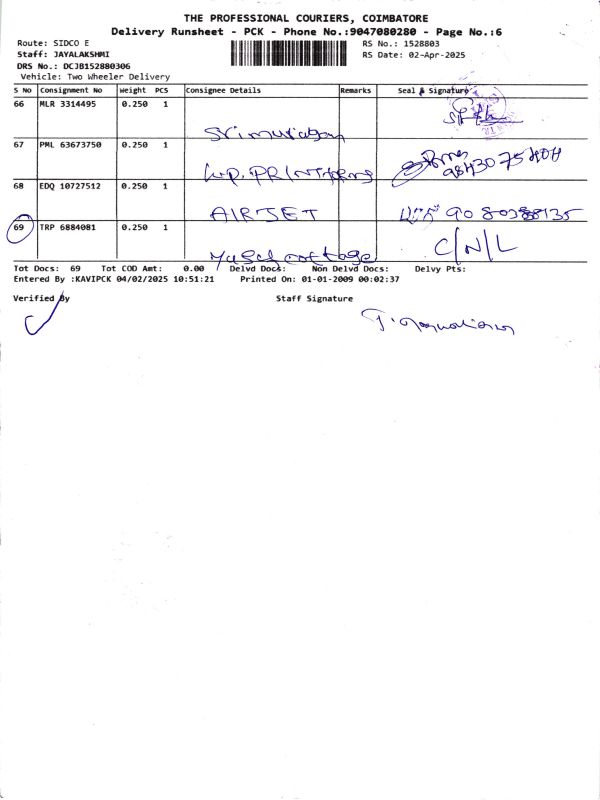 THE PROFESSIONAL COURIERS, COIMBATORE
Delivery Runsheet - PCK - Phone No.:9047080280 - Page No.:6
Route: SIDCO E
RS No.: 1528803
Staff: JAYALAKSHMI
RS Date: 02-Apr-2025
DRS No.: DCJB152880306
Vehicle: Two Wheeler Delivery
S No Consignment No Weight PCS Consignee Details Remarks Seal & Signature
66 MLR 3314495 0.250 1
Srimurugan
67 PML 63673750 0.250 1
68 EDQ 10727512 0.250 1
AIRJET
69 TRP 6884081 0.250 1 C/N/L
cottage
Tot Docs: 69 Tot COD Amt: 0.00 Delvd Docs: Non Delvd Docs: Delvy Pts:
Entered By :KAVIPCK 04/02/2025 10:51:21 Printed On: 01-01-2009 00:02:37
Verified By Staff Signature